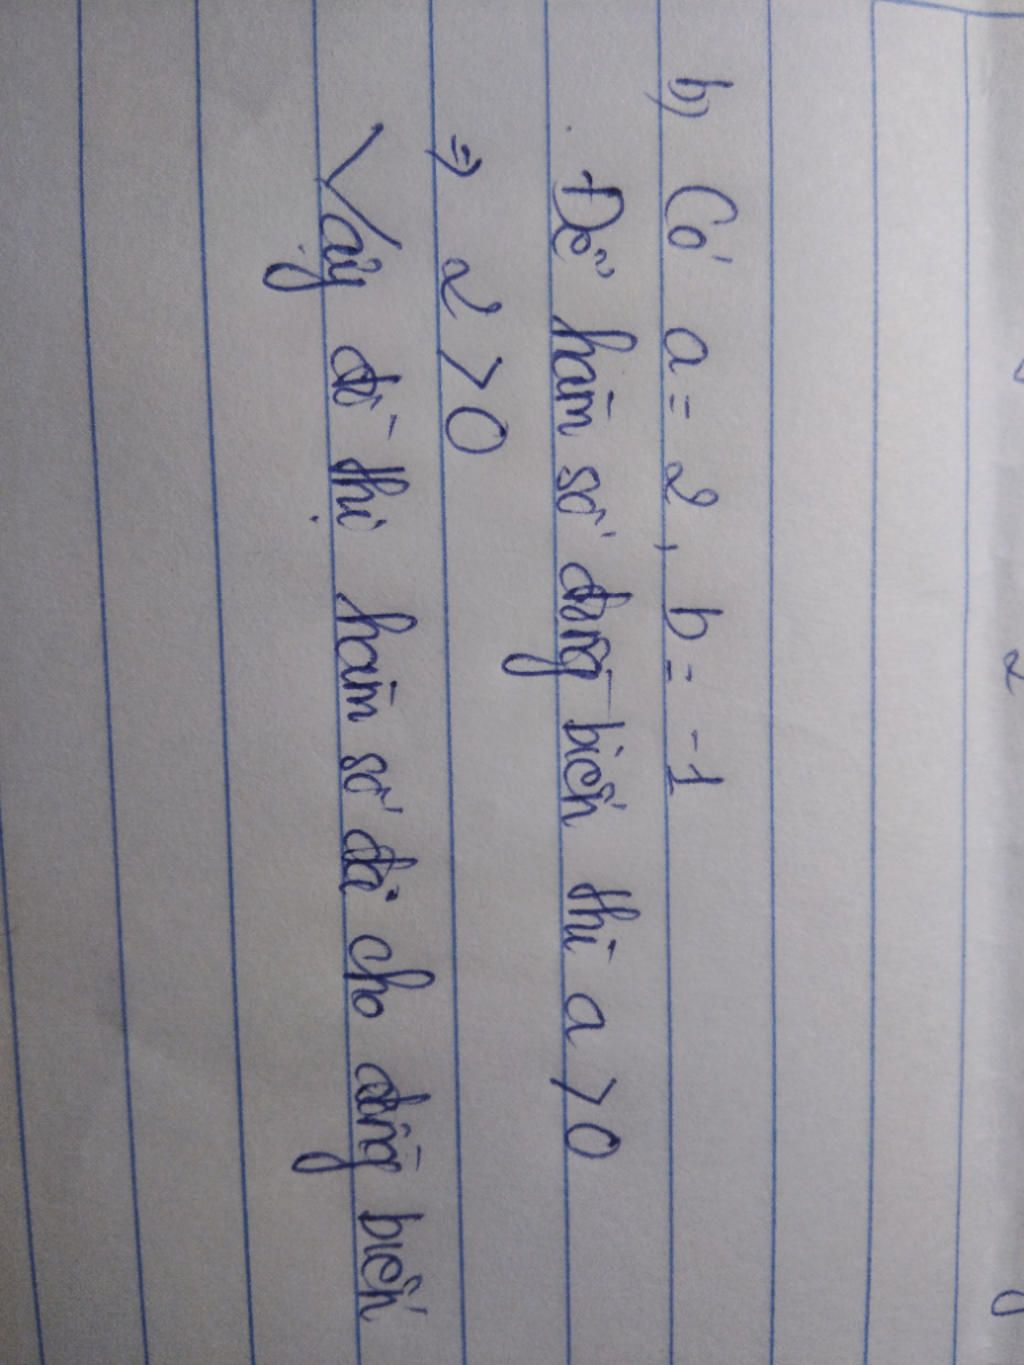 b) Có a = 2, b = -1
Để hàm số đồng biến thì a > 0
=> 2 > 0
Vậy đồ thị hàm số đã cho đồng biến